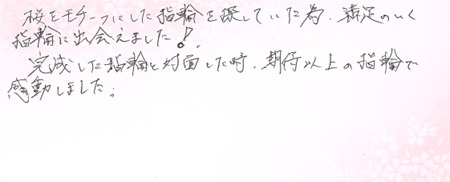 桜をモチーフにした指輪を探していた為、満足のいく
指輪に出会えました!
完成した指輪と対面した時、期待以上の指輪で
感動しました。